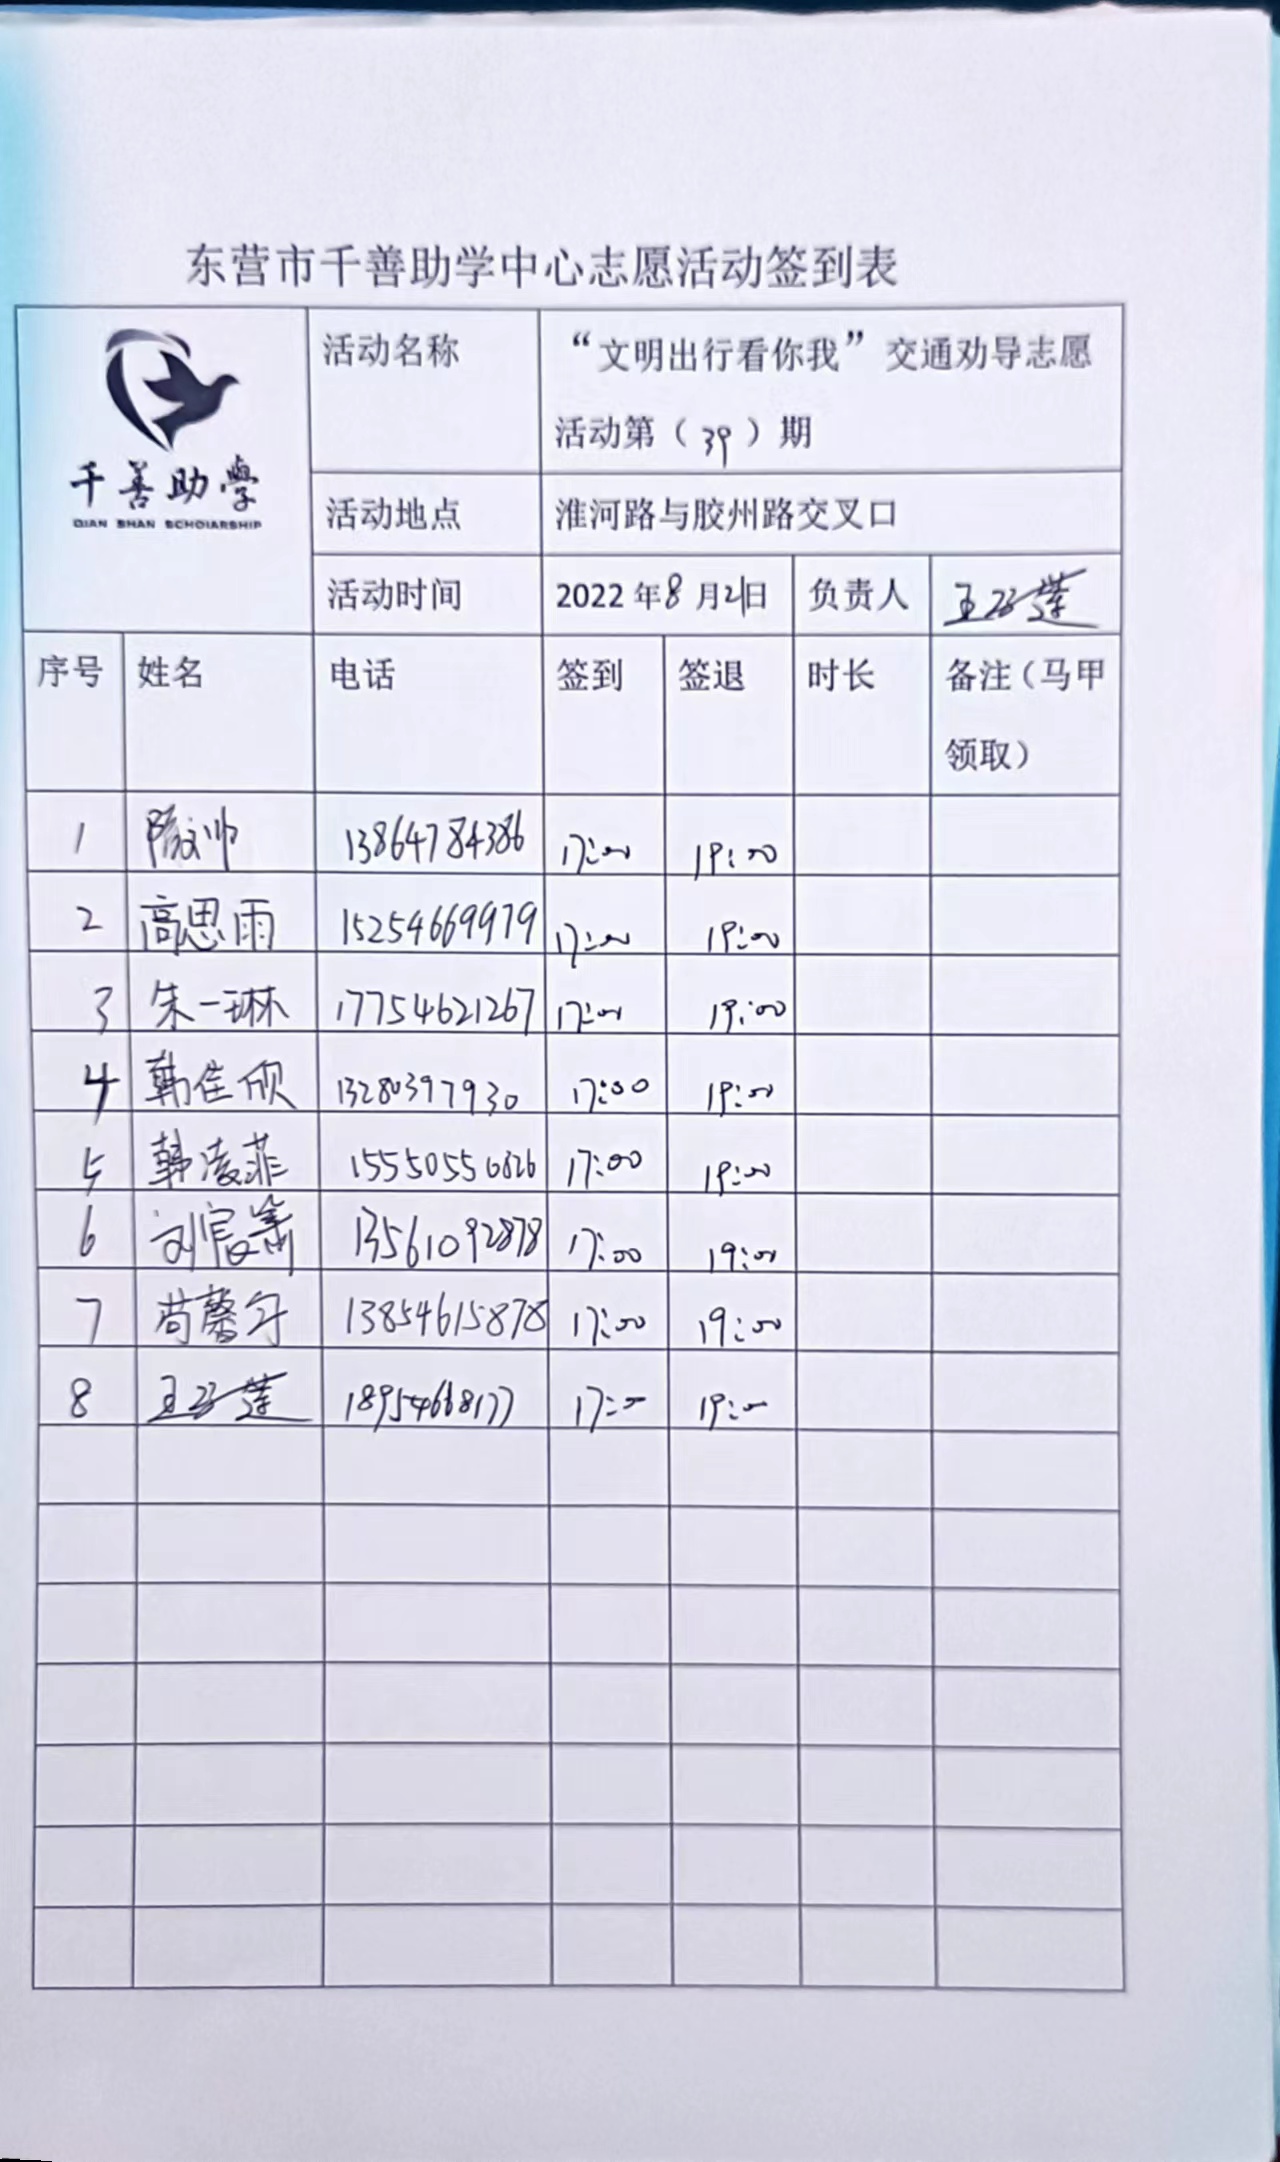 东营市千善助学中心志愿活动签到表
千善助學
QIAN SHAN SCHOLARSHIP
活动名称 “文明出行看你我”交通劝导志愿
活动第（39）期
活动地点 淮河路与胶州路交叉口
活动时间 2022年8月21日 负责人
序号 姓名 电话 签到 签退 时长 备注（马甲
领取）
1 13864784386 17:00 19:00
2 高思雨 15254669979 17:00 19:00
3 朱一琳 17754621267 17:00 19:00
4 韩佳欣 13280397930 17:00 19:00
5 韩凌菲 15550550826 17:00 19:00
6 刘宸箫 13561092878 17:00 19:00
7 13854615878 17:00 19:00
8 18954668177 17:00 19:00